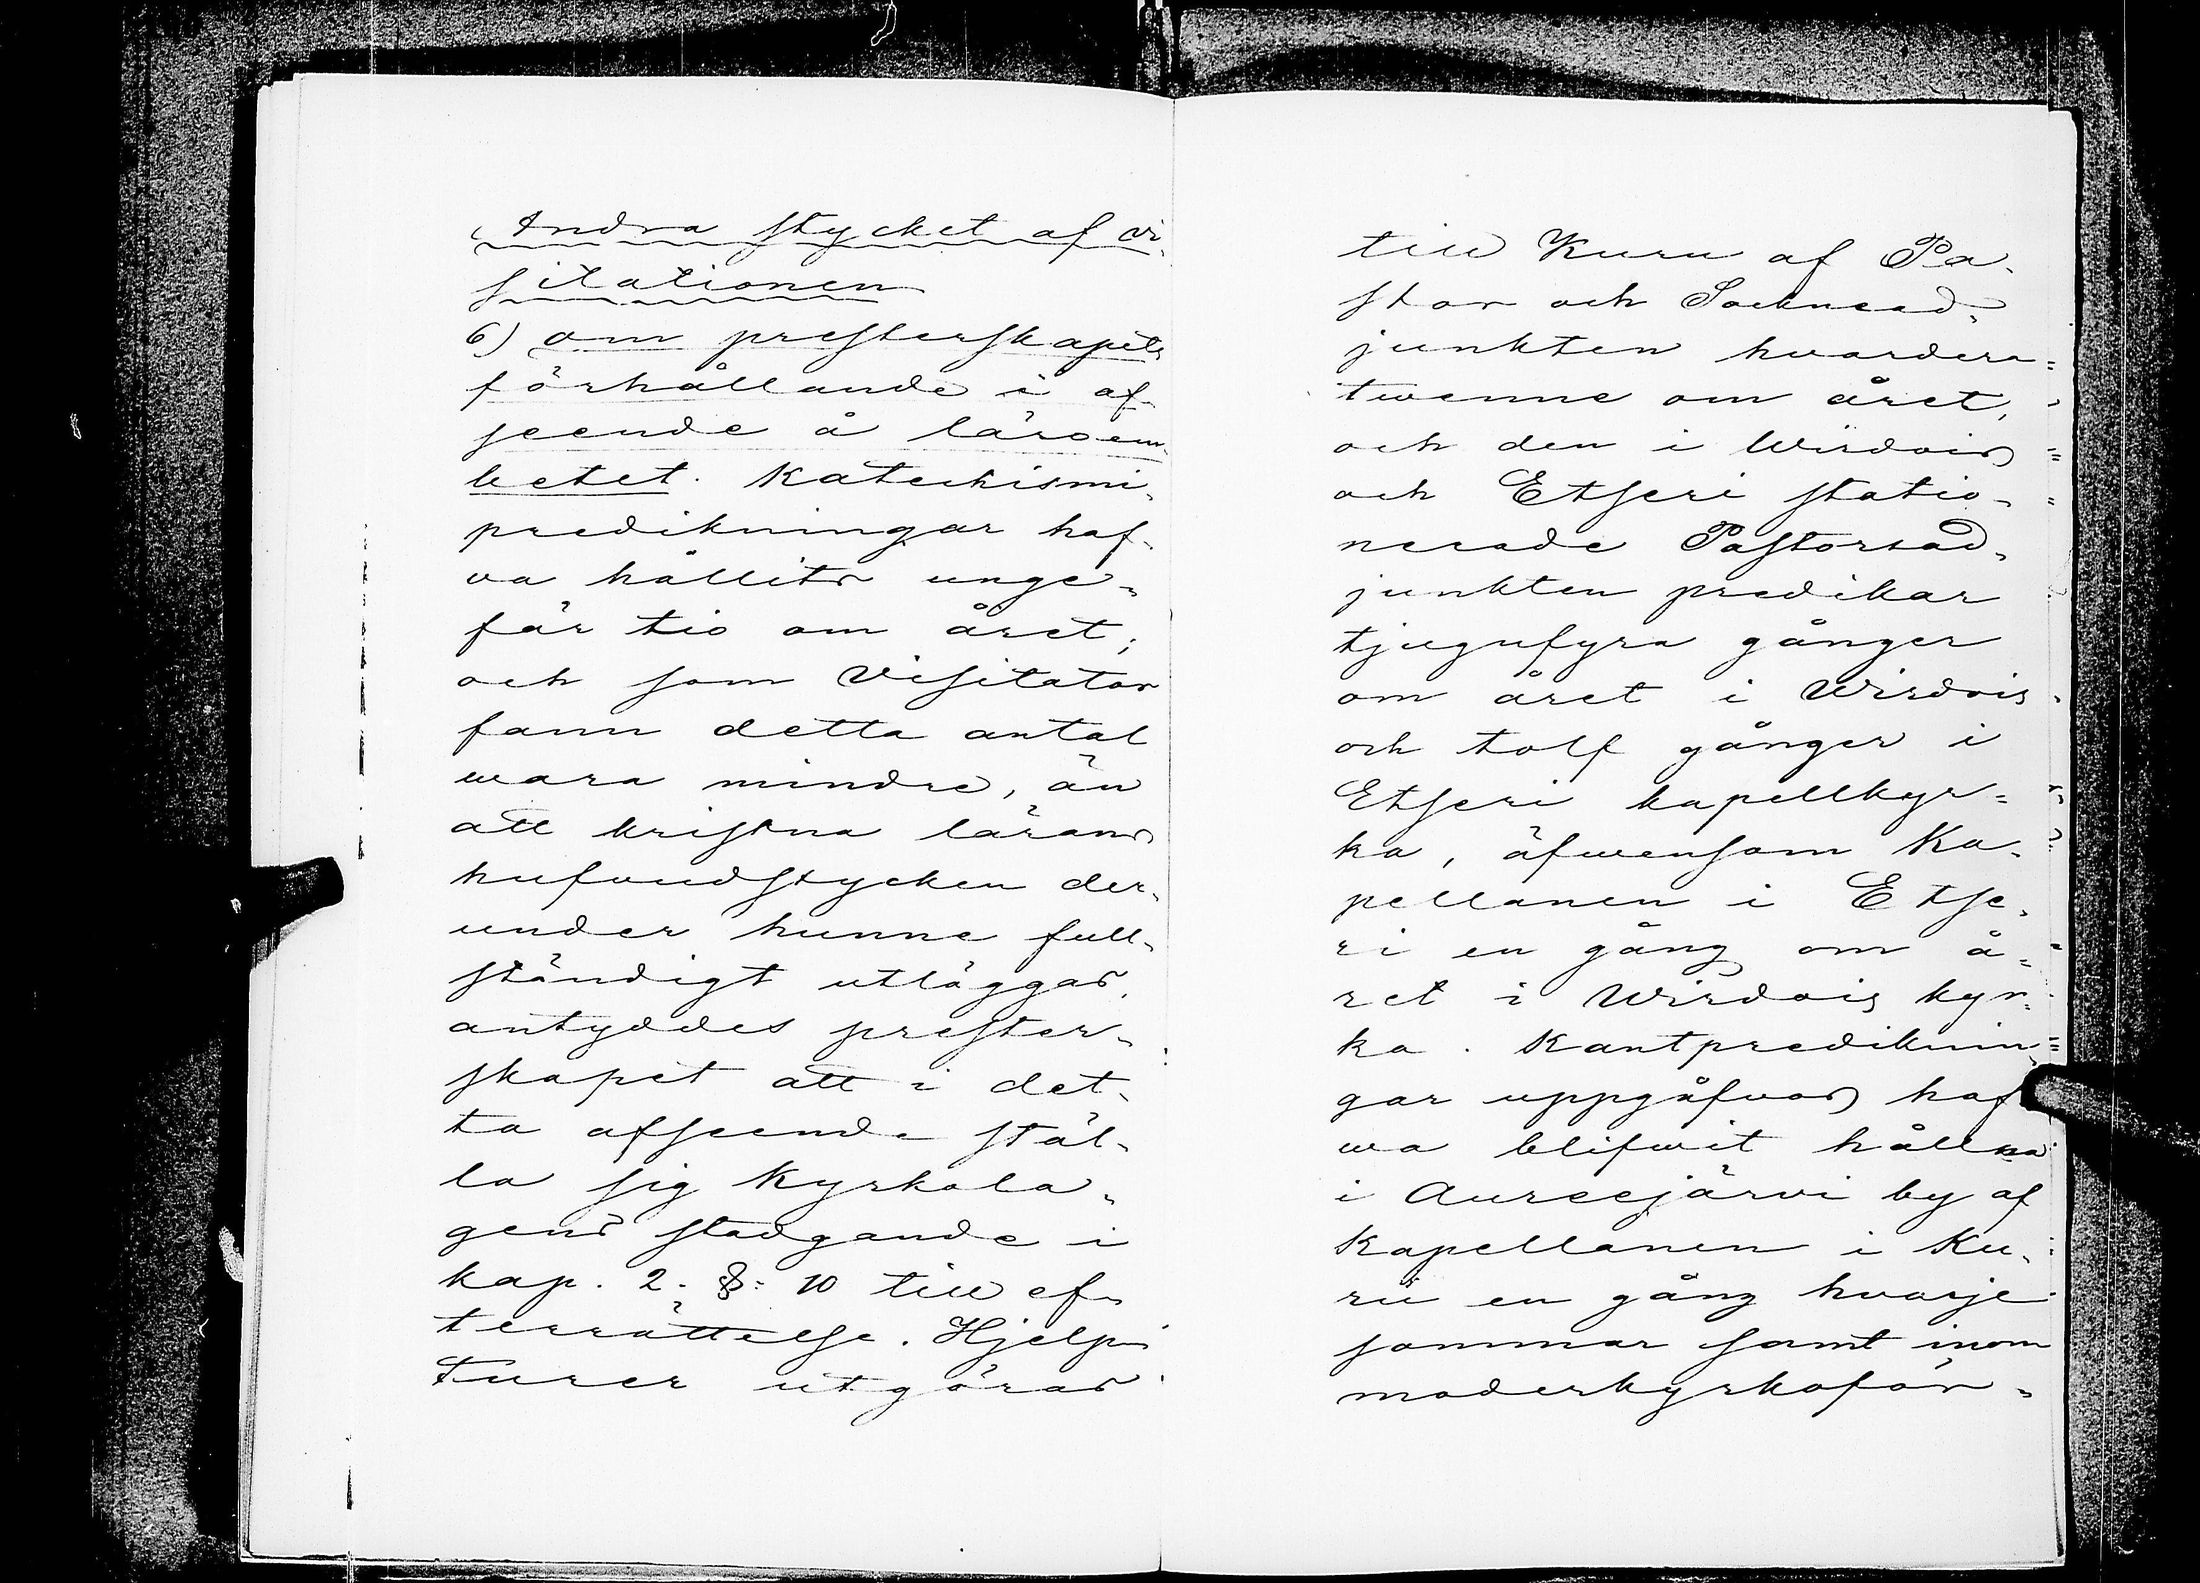 Andra stycket af vi-
sitationen
6) om presterskapets
förhållande i af-
seende å läroem-
betet. Katechismi-
predikningar haf-
va hållits unge-
fär tio om året;
och som Visitator
fann detta antal
wara mindre, än
att kristna lärans
hufvudstycken der-
under hunne full-
ständigt utläggas,
antyddes prester-
skapet att i det-
ta afseende stäl-
la sig Kyrkola-
gens stadgande i
kap. 2. §: 10 till ef-
terrättelse. Hjelp-
turer utgöras
till Kuru af Pa-
stor och Socknead-
junkten hvardera
twenne om året,
och den i Wirdois
och Etseri statio-
nerade Pastorsad-
junkten predikar
tjugufyra gånger
om året i Wirdois
och tolf gånger i
Etseri kapellkyr-
ka, äfwensom Ka-
pellanen i Etse-
ri en gång om å-
ret i Wirdois kyr-
ka. Kantprediknin-
gar uppgåfvos haf-
wa blifwit hållna
i Aureejärwi by af
Kapellanen i Ku-
ru en gång hvarje
sommar samt inom
moderkyrkoför-